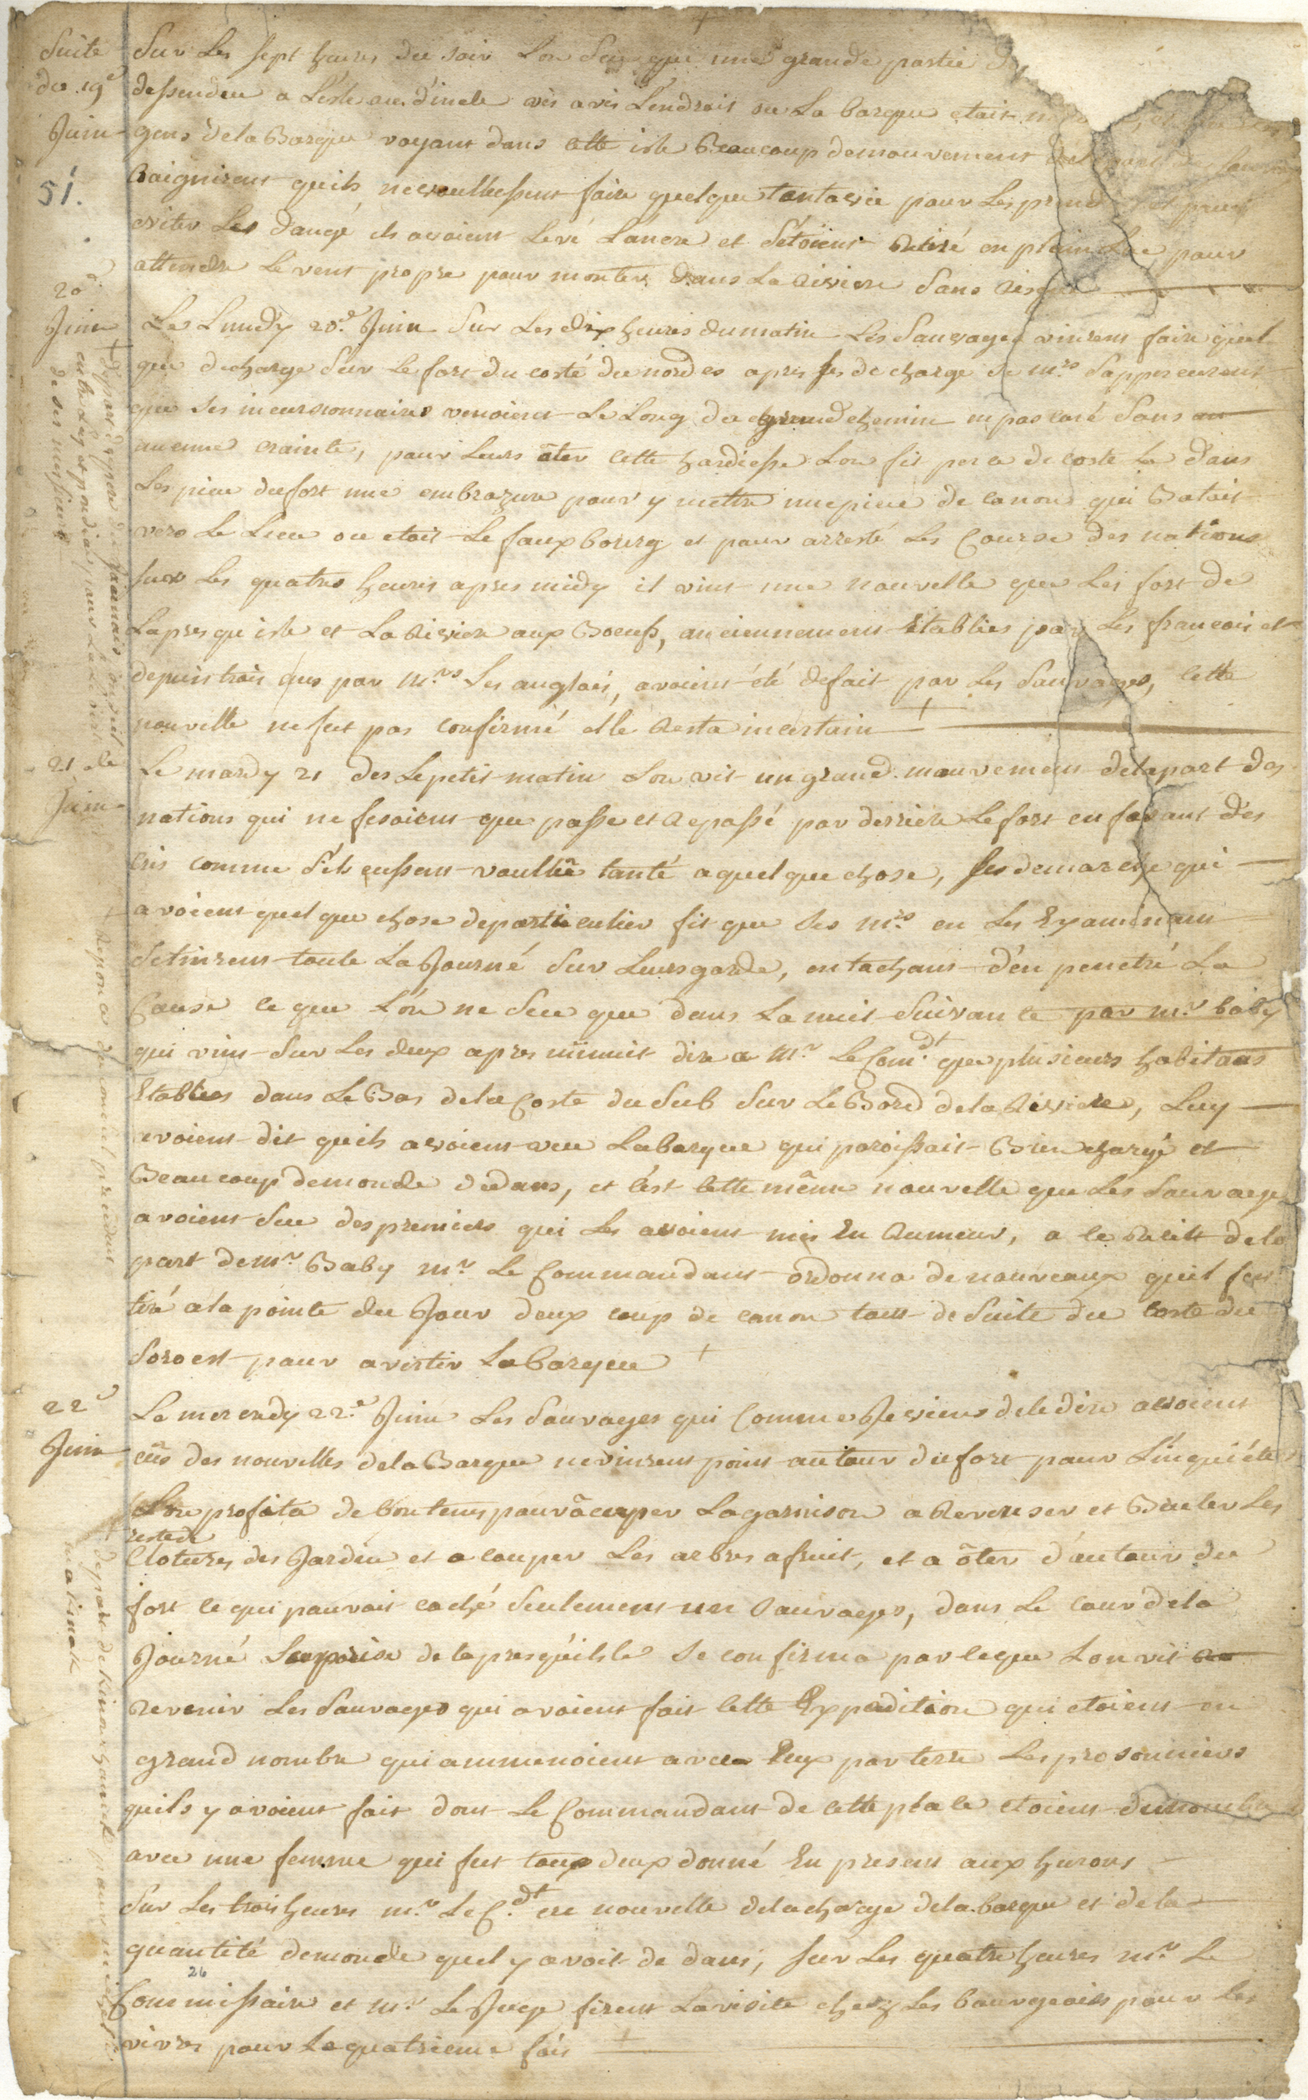 Suite
du 19e
Juin
51.
Sur Les sept heures du soir Lon Seu que une grande partie
dessendeu a L'isle au d'inde vis avis L'endroit ou La barque etait
gens de la Barque voyant dans cette isle Beaucoup demouvement
Craignirent quils ne voullussent faire quelque tantative pour Les
eviter Les dangé ils avoient Levé Lancre et S'étoient Retiré en plein Lac pour
attendre Le vent propre pour monter dans La Riviere Sans
20e
Juin
Le Lundy 20.e Juin Sur Les dix heures dumatin Les Sauvages vinrent faire quel
que decharge Sur Le fort du costé du nordes apres ses decharge Se mrs Sapperceurent
que Ses incursionnaires venoient Le Long du grand chemin Sans
aucune crainte, pour Leurs ôter cette hardiesse Lon fit percé de coste La dans
Les pieu dufort une embrazure pour y mettre unepiece de canon qui Batait
vers Le Lieu ou etait Le faux bourg et pour arresté Les Course des nations
sur Les quatres heures apres midy il vint une nouvelle que Les fort de
Lapresqu isle et La Riviere aux Boeufs, anciennement Etablies par Les francois et
depuis trois ans par Mrs Les anglais, avoient été defait par Les Sauvages, cette
nouvelle ne fut pas confirmé elle Resta incertain +
21 de
Juin
Le mardy 21 des Lepetit matin Lon vit un grand mouvement delapart des
nations qui ne fesoient que passe et Repassé par derriere Lefort en fasant des
cris comme S'ils eussent voullû tanté aquelque chose, ses demarche qui
avoient quelque chose departiculier fit que Ses mrs en Les Examinant
Setinrent toute La Journé Sur Leurs garde, en tachant d'en penetré La
Cause ce que L'on ne Seu que dans La nuit Suivante par mr baby
qui vint Sur Les deux apres minuit dire a Mr Le Com.dt que plusieurs habitans
Etablies dans Le Bas dela Coste du Sub Sur Le Bord dela Riviere, Luy
avoient dit quils avoient veu Labarque qui paroissait Bien chargé et
Beaucoup demonde dedans, et c'est cette même nouvelle que Les Sauvage
avoient Seu des premiers qui Les avoient mis En Rumeur, a ce Recitt dela
part demr Baby mr Le Commandant ordonna de nouveaux quil fut
tiré ala pointe du Jour deux coup de canon tout de Suite du coste du
Soroest pour avertir Labarque +
22e
Juin
Le mercredy 22.e Juin Les Sauvages qui Comme Je viens dele dire avoient
eûs des nouvelles dela Barque nevinrent point autour dufort pour L'inquiéter
L'on profita de con tems pour ôccuper Lagarnison a Renverser et Bruler Les
reste de
Cloture, des Jardin et a couper Les arbres afruit, et a ôter d'autour du
fort ce qui pouvoit caché Seulement un Sauvages, dans Le cour dela
Journé Lapprise de lapresqu'isle Se confirma par ceque Lon vit
revenir Les Sauvages qui avoient fait cette Expedition qui etoient en
grand nombre qui ammenoient avec Eux par terre Les prosonniers
quils y avoient fait dont Le Commandant de cette place etoient dunombre
avec une femme qui fut tous deux donné En present aux hurons
Sur Les trois heures mr Le C.dt eu nouvelle dela charge dela barque et dela
quantité demonde quel y avoit de dans, sur Les quatre heures mr Le
26
Commissaire et mr Le Juge firent Lavisite chez Les bourgeois pour Les
vivres pour La quatrieme fois +